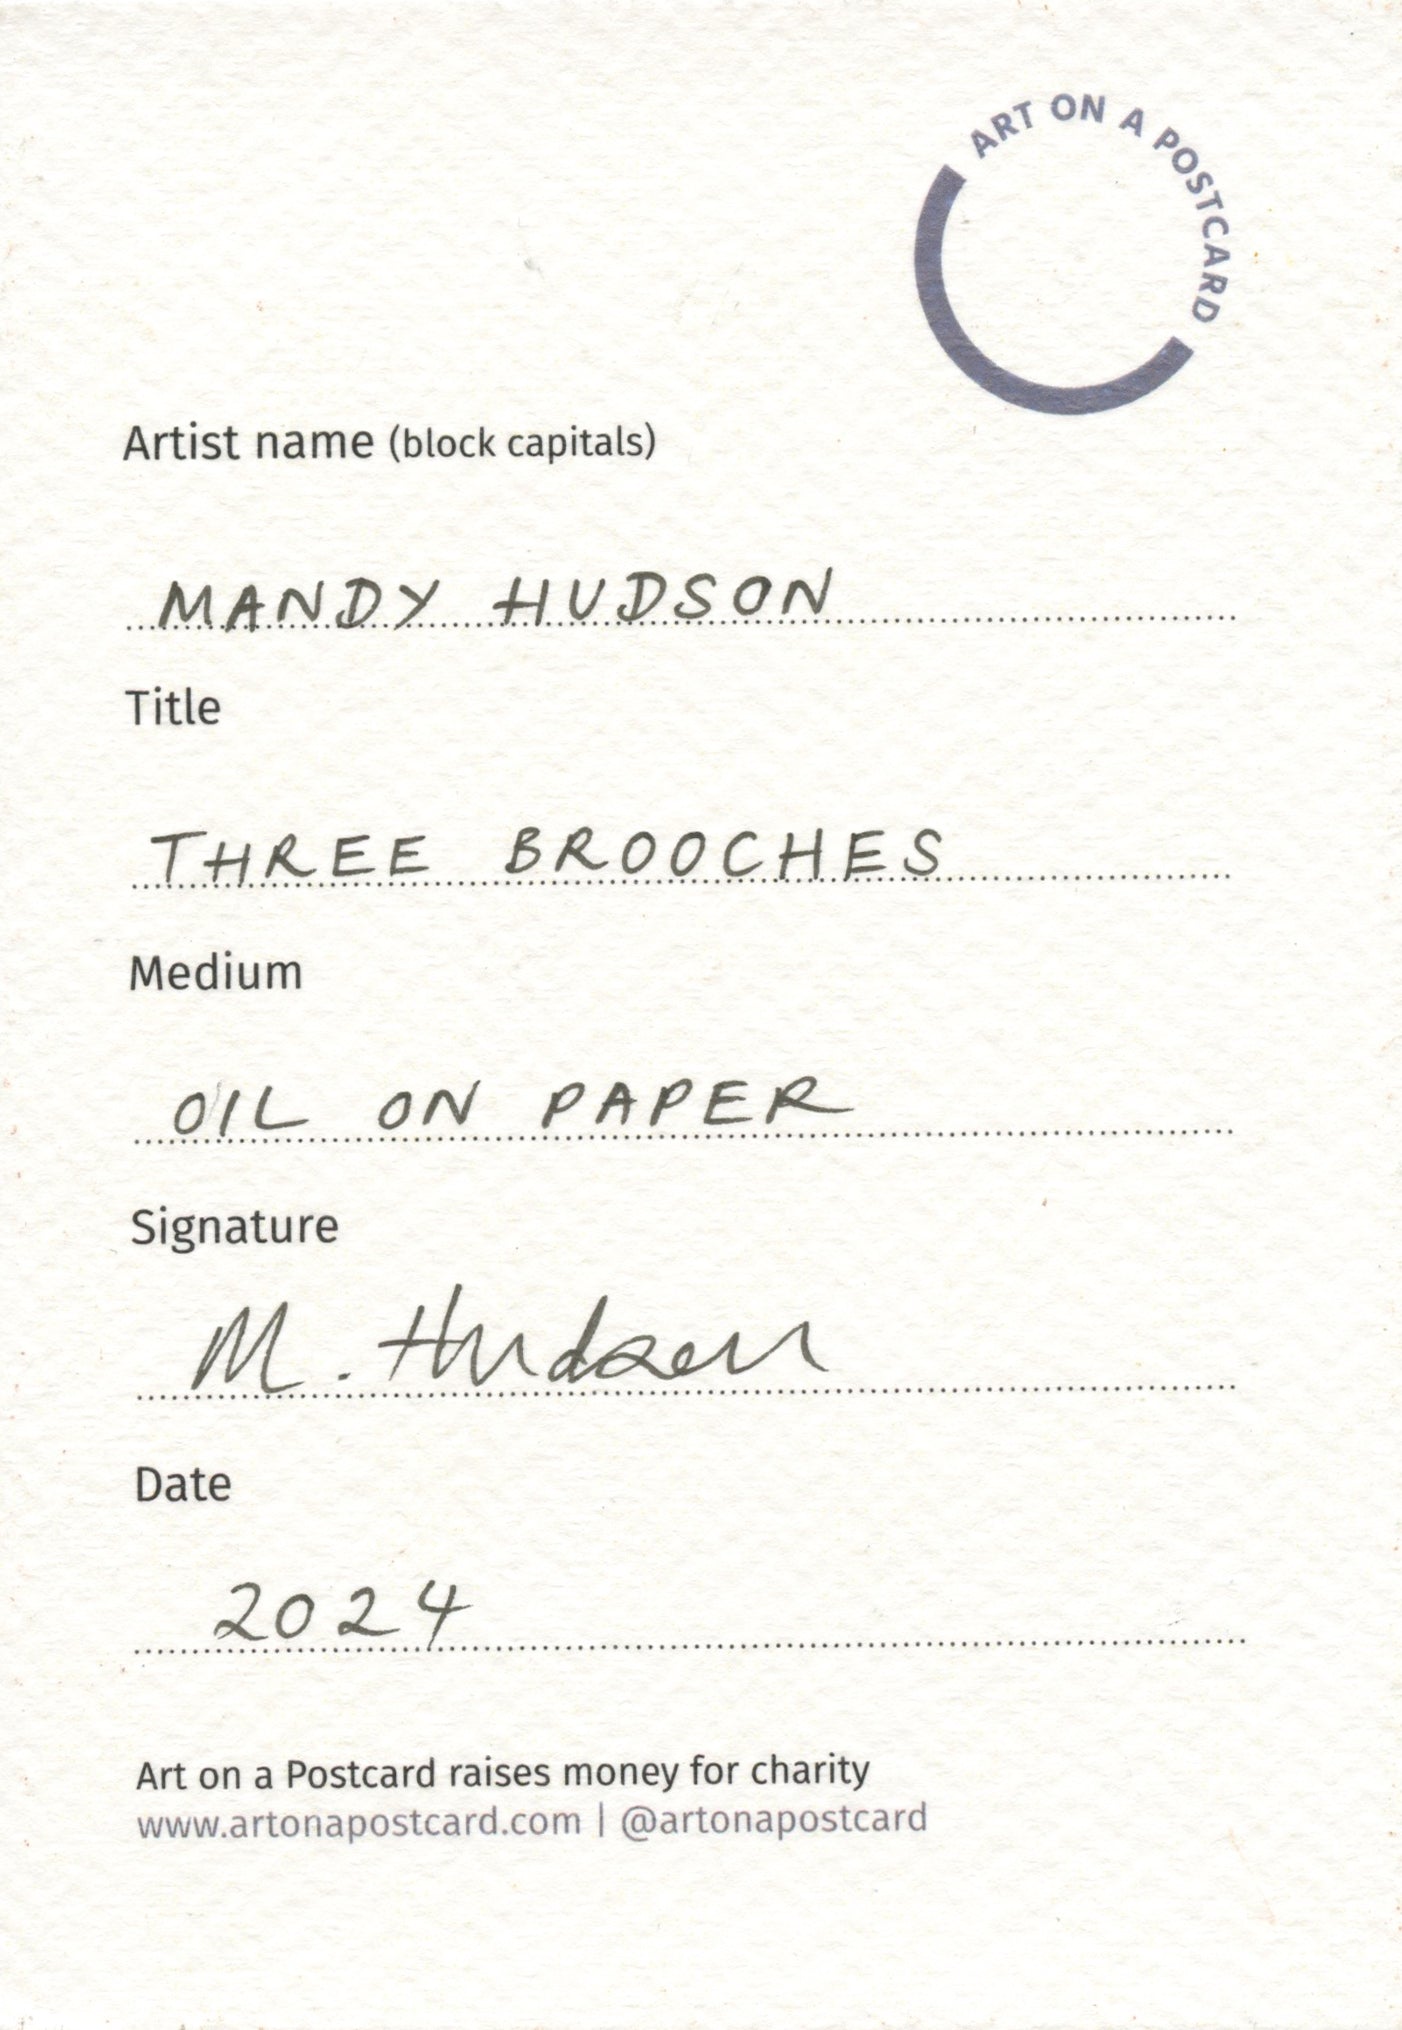 ART ON A POSTCARD
Artist name (block capitals)
MANDY HUDSON
Title
THREE BROOCHES
Medium
OIL ON PAPER
Signature
M. Hudson
Date
2024
Art on a Postcard raises money for charity
www.artonapostcard.com | @artonapostcard